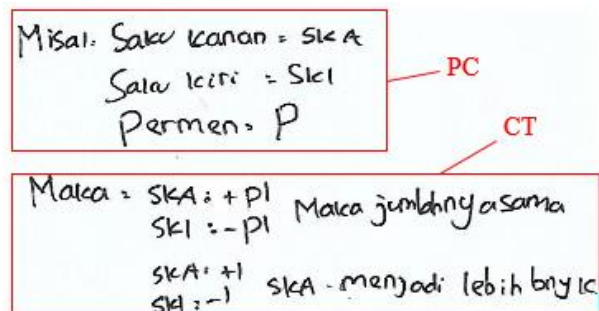 Misal: Saku kanan = SKA
Saku kiri = SKI
Permen = P
PC
CT
Maka = SKA : + P1
SKI : - P1 Maka jumlahnya sama
SKA : +1
SKI : -1 SKA menjadi lebih bnyk